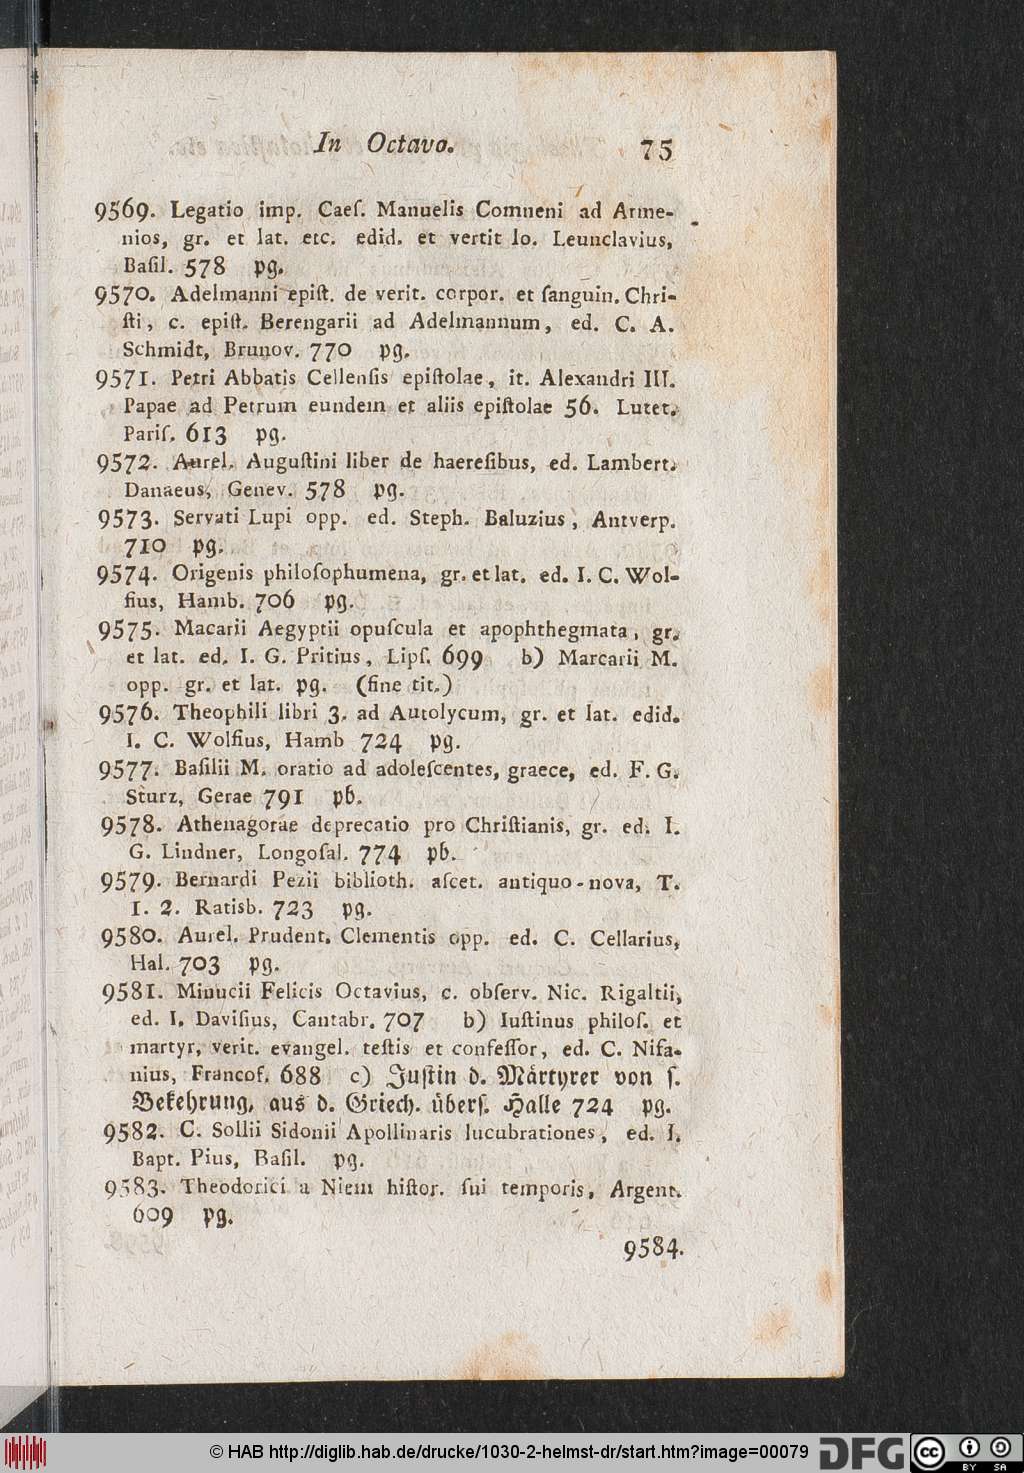 In Octavo. 75
9569. Legatio imp. Caeſ. Manuelis Comneni ad Arme-
nios, gr. et lat. etc. edid. et vertit Io. Leunclavius,
Baſil. 578 pg.
9570. Adelmanni epiſt. de verit. corpor. et ſanguin. Chri-
ſti, c. epiſt. Berengarii ad Adelmannum, ed. C. A.
Schmidt, Brunov. 770 pg.
9571. Petri Abbatis Cellenſis epiſtolae, it. Alexandri III.
Papae ad Petrum eundem et aliis epiſtolae 56. Lutet.
Pariſ. 613 pg.
9572. Aurel. Auguſtini liber de haereſibus, ed. Lambert.
Danaeus, Genev. 578 pg.
9573. Servati Lupi opp. ed. Steph. Baluzius, Antverp.
710 pg.
9574. Origenis philoſophumena, gr. et lat. ed. I. C. Wol-
fius, Hamb. 706 pg.
9575. Macarii Aegyptii opuſcula et apophthegmata, gr.
et lat. ed. I. G. Pritius, Lipſ. 699 b) Marcarii M.
opp. gr. et lat. pg. (ſine tit.)
9576. Theophili libri 3. ad Autolycum, gr. et lat. edid.
I. C. Wolfius, Hamb 724 pg.
9577. Baſilii M. oratio ad adoleſcentes, graece, ed. F. G.
Sturz, Gerae 791 pb.
9578. Athenagorae deprecatio pro Chriſtianis, gr. ed. I.
G. Lindner, Longoſal. 774 pb.
9579. Bernardi Pezii biblioth. aſcet. antiquo-nova, T.
1. 2. Ratisb. 723 pg.
9580. Aurel. Prudent. Clementis opp. ed. C. Cellarius,
Hal. 703 pg.
9581. Minucii Felicis Octavius, c. obſerv. Nic. Rigaltii,
ed. I. Daviſius, Cantabr. 707 b) Iuſtinus philoſ. et
martyr, verit. evangel. teſtis et confeſſor, ed. C. Nifa-
nius, Francof. 688 c) Juſtin d. Märtyrer von ſ.
Bekehrung, aus d. Griech. überſ. Halle 724 pg.
9582. C. Sollii Sidonii Apollinaris lucubrationes, ed. I.
Bapt. Pius, Baſil. pg.
9583. Theodorici a Niem hiſtor. ſui temporis, Argent.
609 pg.
9584.
© HAB http://diglib.hab.de/drucke/1030-2-helmst-dr/start.htm?image=00079 DFG cc BY SA